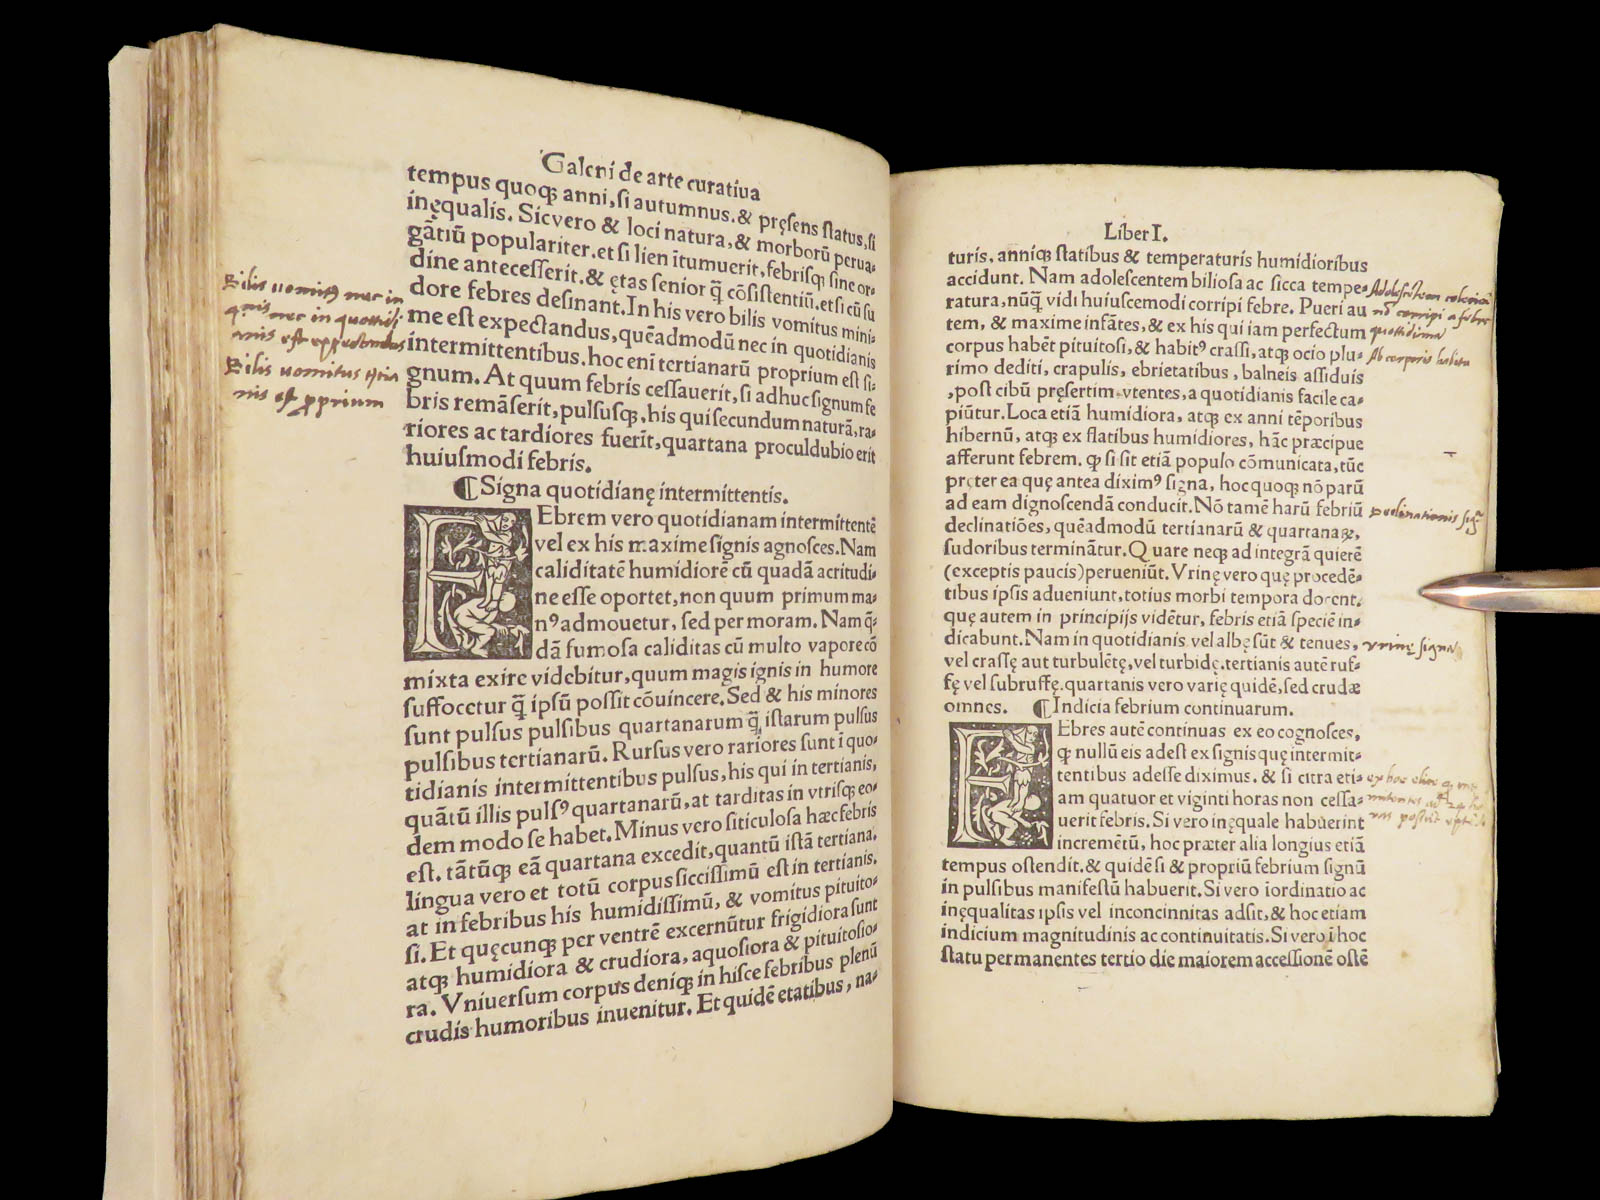 Galeni de arte curatiua
tempus quoqꝫ anni, ſi autumnus. & pręſens ſtatus, ſi
inęqualis. Sicvero & loci natura, & morborū perua-
gātiū populariter. et ſi lien ītumuerit, febriſqꝫ ſine or-
dine anteceſſerit. & ętas ſenior q̄ cōſiſtentiū. et ſi cū ſu
dore febres deſinant. In his vero bilis vomitus mini-
me eſt expectandus, quēadmodū nec in quotidianis
intermittentibus. hoc enī tertianarū proprium eſt ſi-
gnum. At quum febris ceſſauerit, ſi adhuc ſignum fe
bris remāſerit, pulſuſqꝫ, his qui ſecundum naturā, ra-
riores ac tardiores fuerīt, quartana proculdubio erit
huiuſmodi febris.
¶ Signa quotidianę intermittentis.
FEbrem vero quotidianam intermittentē
vel ex his maxime ſignis agnoſces. Nam
caliditatē humidiorē cū quadā acritudi-
ne eſſe oportet, non quum primum ma-
nꝰ admouetur, ſed per moram. Nam q̄-
dā fumoſa caliditas cū multo vapore cō
mixta exire videbitur, quum magis ignis in humore
ſuffocetur q̄ ipſū poſſit cōuincere. Sed & his minores
ſunt pulſus pulſibus quartanarum q̄ iſtarum pulſus
pulſibus tertianarū. Rurſus vero rariores ſunt ī quo-
tidianis intermittentibus pulſus, his qui in tertianis,
quātū illis pulſꝰ quartanarū, at tarditas in vtriſqꝫ eo-
dem modo ſe habet. Minus vero ſiticuloſa hæc febris
eſt. tātūqꝫ eā quartana excedit, quantū iſtā tertiana.
lingua vero et totū corpus ſicciſſimū eſt in tertianis.
at in febribus his humidiſſimū, & vomitus pituito-
ſi. Et quęcunqꝫ per ventrē excernūtur frigidiora ſunt
atqꝫ humidiora & crudiora, aquoſiora & pituitoſio-
ra. Vniuerſum corpus deniqꝫ in hiſce febribus plenū
crudis humoribus inuenitur. Et quidē etatibus, na-
Bilis uomitꝰ nec in
nec in quotidi
anis est expectandus
Bilis uomitus
nis est proprium
Liber I.
turis, anniqꝫ ſtatibus & temperaturis humidioribus
accidunt. Nam adoleſcentem bilioſa ac ſicca tempe-
ratura, nūq̄ vidi huiuſcemodi corripi febre. Pueri au
tem, & maxime infātes, & ex his qui iam perfectum
corpus habēt pituitoſi, & habitꝰ craſſi, atqꝫ ocio plu-
rimo dediti, crapulis, ebrietatibus, balneis aſſiduis
, poſt cibū pręſertim vtentes, a quotidianis facile ca-
piūtur. Loca etiā humidiora, atqꝫ ex anni tēporibus
hibernū, atqꝫ ex ſtatibus humidiores, hāc præcipue
afferunt febrem. ꝙ ſi ſit etiā populo cōmunicata, tūc
pręter ea quę antea diximꝰ ſigna, hoc quoqꝫ nō parū
ad eam dignoſcendā conducit. Nō tamē harū febriū
declinatiōes, quēadmodū tertianarū & quartanaꝝ,
ſudoribus terminātur. Quare neqꝫ ad integrā quietē
(exceptis paucis) perueniūt. Vrinę vero quę procedē-
tibus ipſis adueniunt, totius morbi tempora docent.
quę autem in principijs vidētur, febris etiā ſpeciē in-
dicabunt. Nam in quotidianis vel albę ſūt & tenues,
vel craſſę aut turbulētę, vel turbidę. tertianis autē ruf-
fę vel ſubruffę. quartanis vero varię quidē, ſed crudæ
omnes. ¶ Indicia febrium continuarum.
FEbres autē continuas ex eo cognoſces,
ꝙ nullū eis adeſt ex ſignis quę intermit-
tentibus adeſſe diximus. & ſi citra eti-
am quatuor et viginti horas non ceſſa-
uerit febris. Si vero inęquale habuerint
incremētū, hoc præter alia longius etiā
tempus oſtendit. & quidē ſi & propriū febrium ſignū
in pulſibus manifeſtū habuerit. Si vero iordinatio ac
inęqualitas ipſis vel inconcinnitas adſit, & hoc etiam
indicium magnitudinis ac continuitatis. Si vero ī hoc
ſtatu permanentes tertio die maiorem acceſſionē oſtē
corripi a febre
quottidiana
Ab corporis habitu
declinationis
vrinę signa
ex hoc